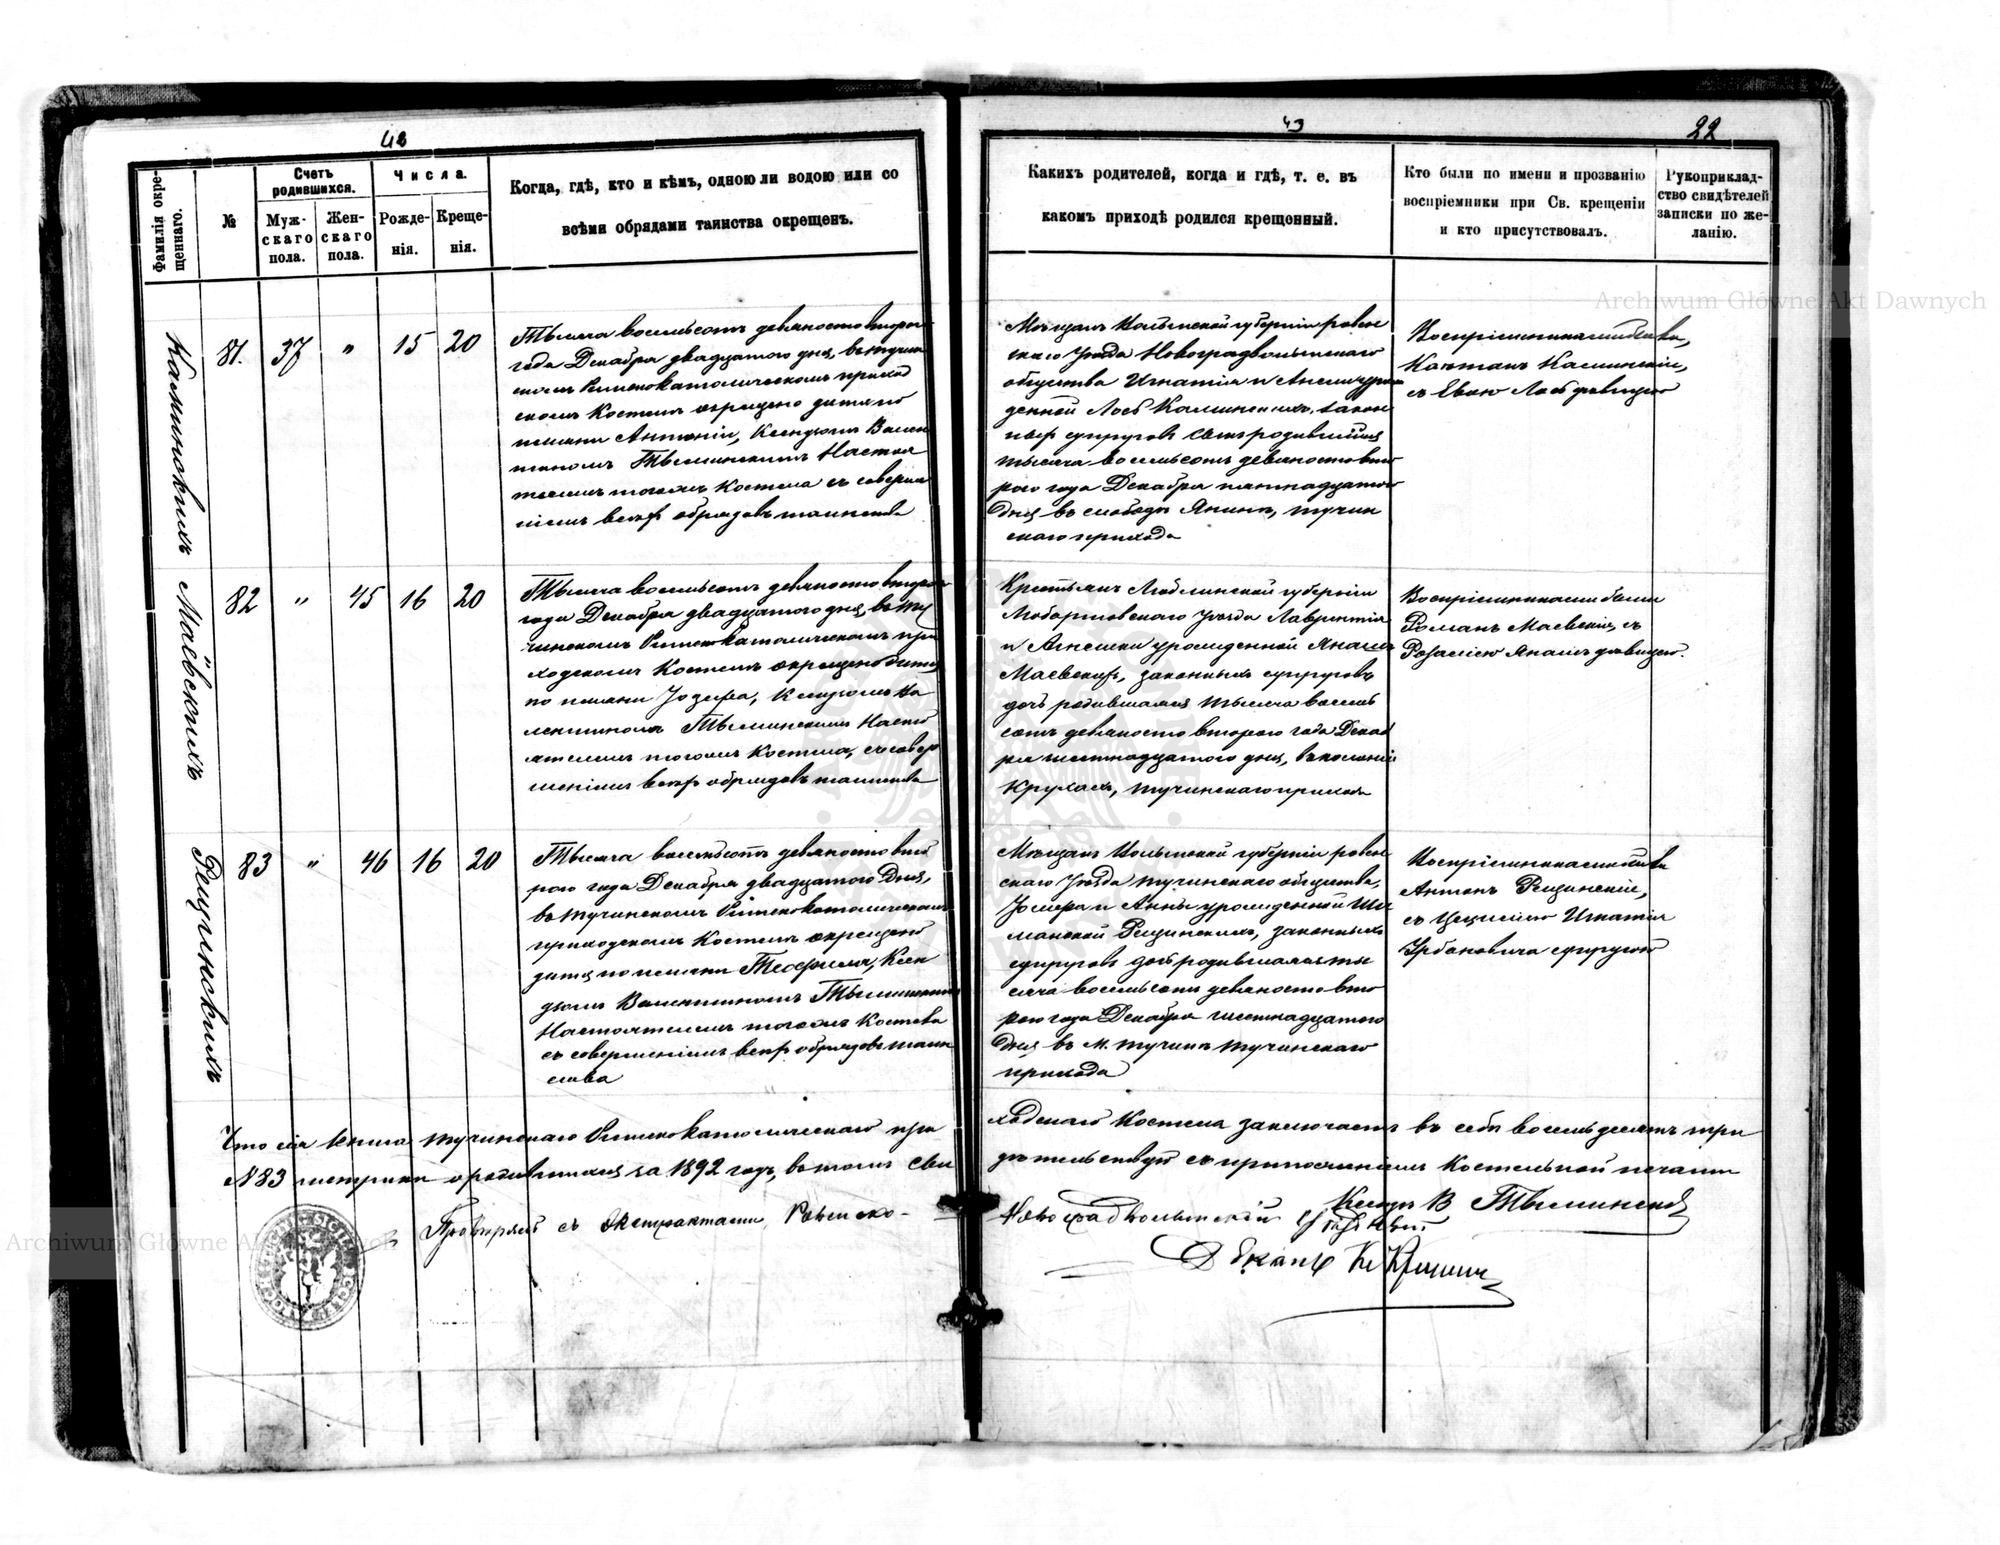 48
43
22
Фамилія окре-
щеннаго.
№
Счетъ
родившихся.
Муж-
скаго
пола.
Жен-
скаго
пола.
Числа.
Рожде-
нія.
Креще-
нія.
Когда, гдѣ, кто и кѣмъ, одною ли водою или со
всѣми обрядами таинства окрещенъ.
Какихъ родителей, когда и гдѣ, т. е. въ
какомъ приходѣ родился крещенный.
Кто были по имени и прозванію
воспріемники при Св. крещеніи
и кто присутствовалъ.
Рукоприклад-
ство свидѣтелей
записки по же-
ланію.
Калинскихъ
81.
37
"
15
20
Тысяча восемьсотъ девяносто второго
года Декабря двадцатого дня, въ Тучин
скомъ Римскокатолическомъ приход
скомъ Костелѣ окрещено дитя по
имени Антоній, Ксендзомъ Вален
тиномъ Тыминскимъ Настоя
телемъ тогожъ Костела съ соверше
ніемъ всѣхъ обрядовъ таинства
Мѣщанъ Волынской губерніи ровен
скаго Уѣзда Новоградволынскаго
общества Игнатія и Анели урож
денной Лось Калинскихъ, закон
ныхъ супруговъ сынъ родившійся
тысяча восемьсотъ девяносто вто
рого года Декабря пятнадцатого
Дня въ слободѣ Янинѣ, тучин
скаго прихода
Воспріемниками были,
Каэтанъ Калинскій,
съ Евою Лось дѣвицею
Маевскихъ
82
"
45
16
20
Тысяча восемьсотъ девяносто второго
года Декабря двадцатого дня, въ Ту
чинскомъ Римскокатолическомъ при
ходскомъ Костелѣ окрещено дитя
по имени Іозефа, Ксендзомъ Ва
лентиномъ Тыминскимъ Насто
ятелемъ тогожъ Костела, съ совер
шеніемъ всѣхъ обрядовъ таинства
Крестьянъ Люблинской губерніи
Любартовскаго Уѣзда Лаврентія
и Агнешки урожденной
Маевскихъ, законныхъ супруговъ
дочь родившаяся тысяча восемь
сотъ девяносто второго года Декаб
ря шестнадцатого дня, въ колоніи
тучинскаго прихода
Воспріемниками были
Романъ Маевскій, съ
Розаліею дѣвицею.
Рещинскихъ
83
"
46
16
20
Тысяча восемьсотъ девяносто вто
рого года Декабря двадцатого Дня,
въ Тучинскомъ Римскокатолическомъ
приходскомъ Костелѣ окрещено
дитя по имени Теофиля, Ксен
дзомъ Валентиномъ Тыминскимъ
Настоятелемъ тогожъ Костела
съ совершеніемъ всѣхъ обрядовъ таин
ства
Мѣщанъ Волынской губерніи ровен
скаго Уѣзда тучинскаго общества,
Іозефа и Анны урожденной Ши
манской Рещинскихъ, законныхъ
супруговъ дочь родившаяся ты
сяча восемьсотъ девяносто вто
рого года Декабря шестнадцатого
Дня въ м. Тучинѣ тучинскаго
прихода
Воспріемниками были
Антонъ Рещинскій,
съ Цециліею Игнатія
Урбановича супругою
Что сія книга тучинскаго Римскокатолическаго при
ходскаго Костела заключаетъ въ себѣ восемьдесятъ три
№83 метрики о родившихся за 1892 годъ, въ томъ сви
дѣтельствую съ приложеніемъ Костельной печати
Ксендзъ В Тыминскій
Провѣрялъ съ Экстрактами, Ровенско-
Новоградволынскій
Деканъ Кс
Archiwum Główne Akt Dawnych
Archiwum Główne Akt Dawnych